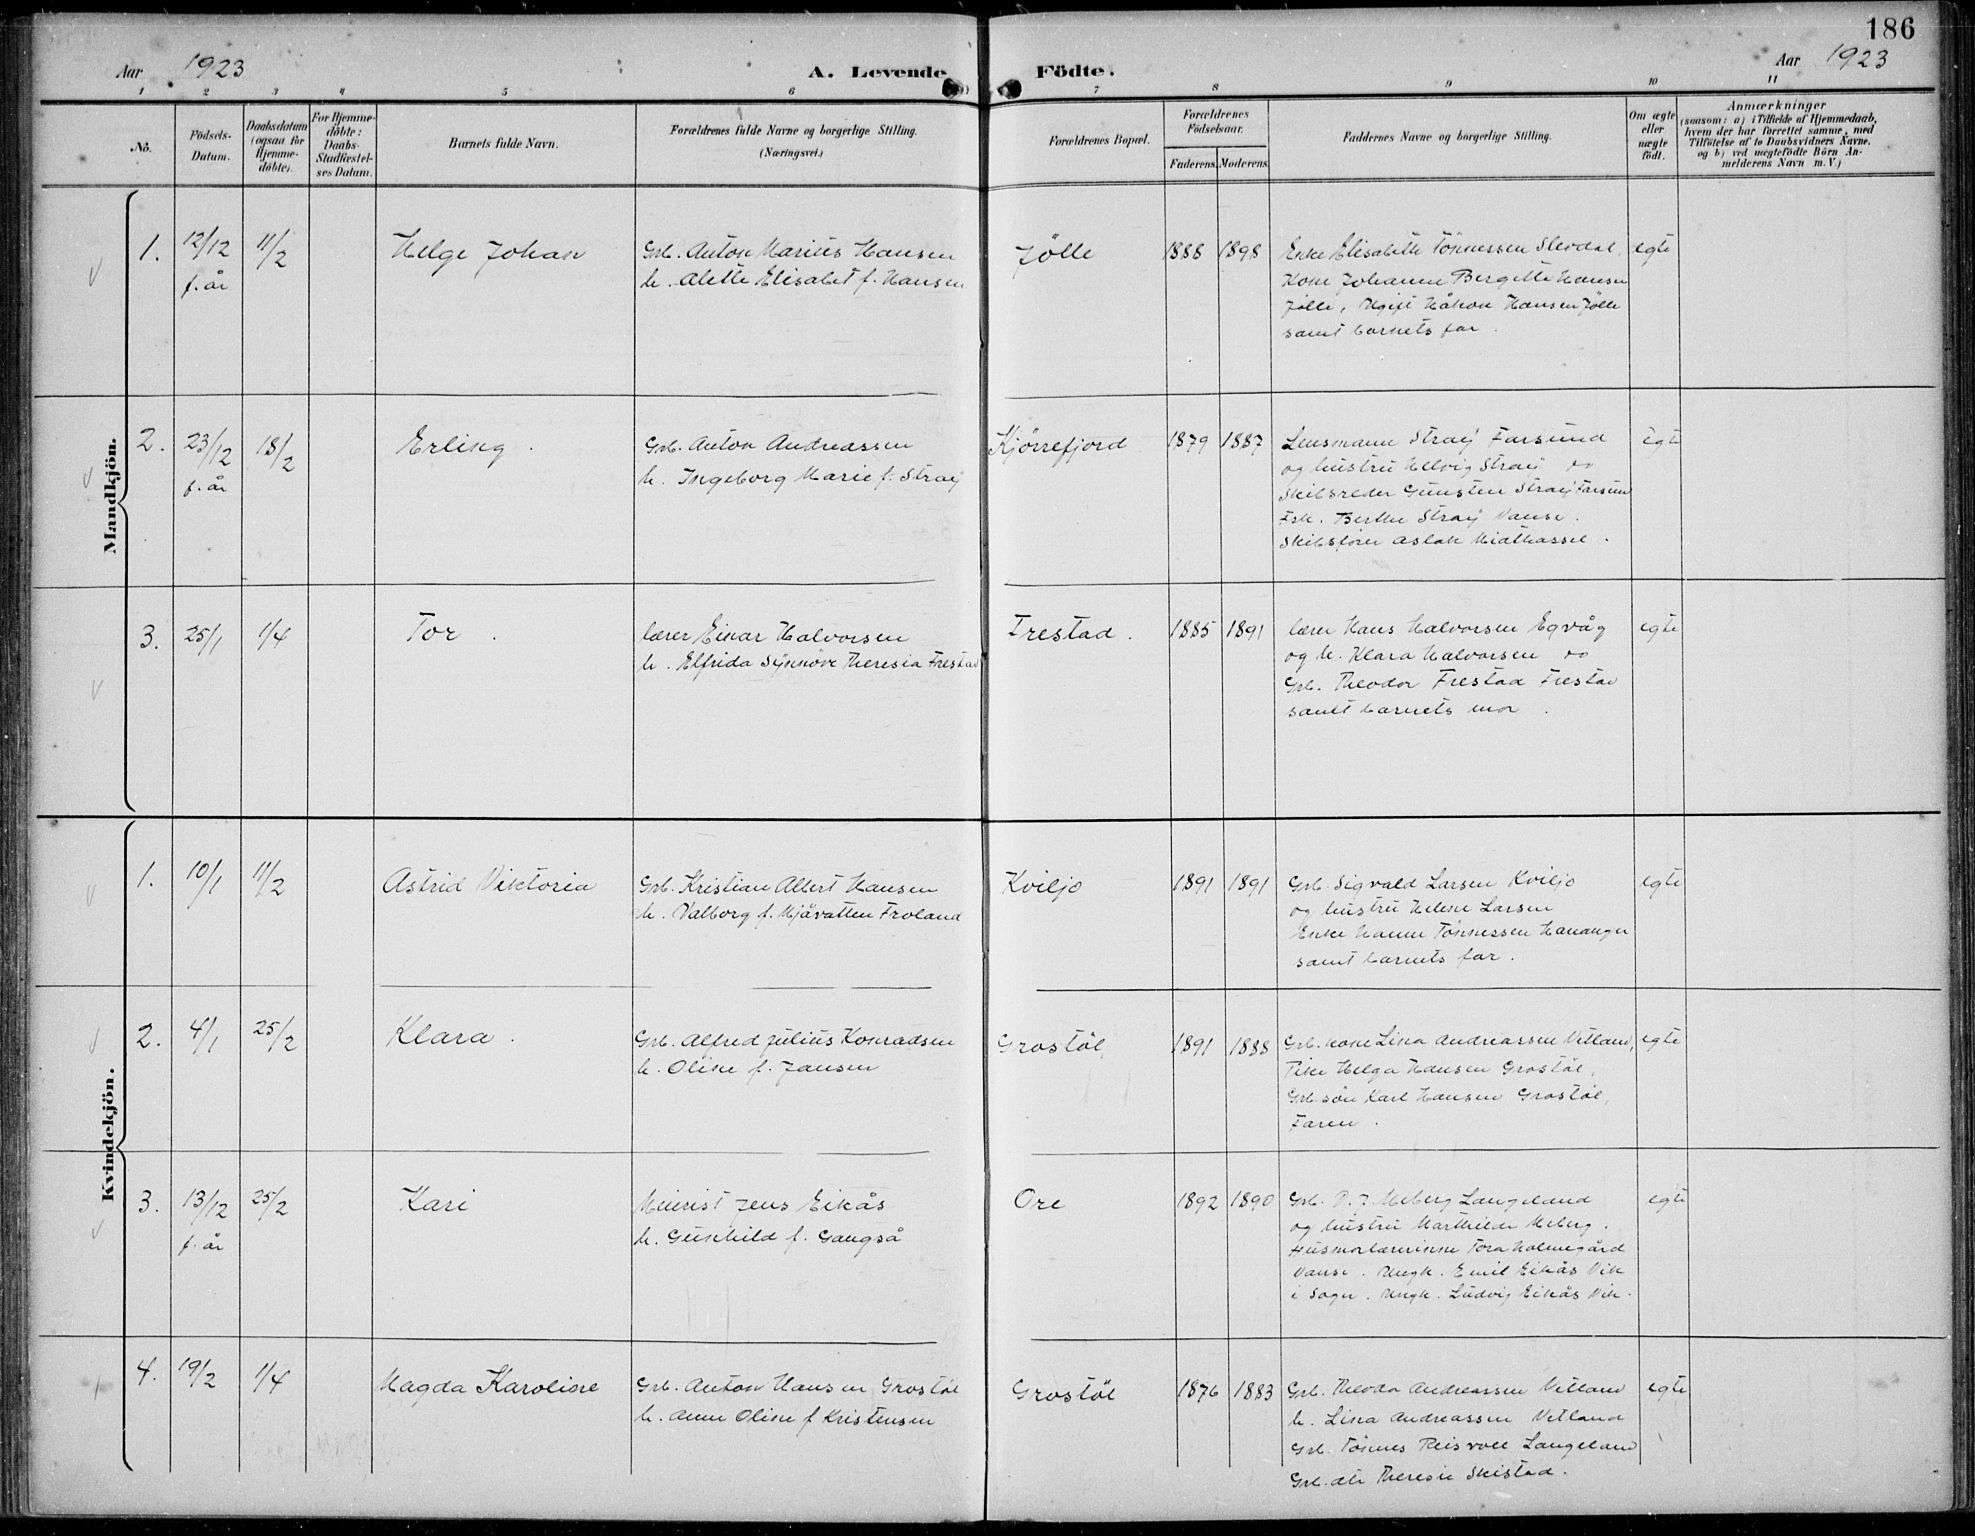 186
Aar 1923
A. Levende Födte.
Aar 1923
1 2 3 4 5 6 7 8 9 10 11
No.
Födsels-
Datum.
Daabsdatum
(ogsaa for
Hjemme-
döbte).
For Hjemme-
döbte:
Daabs-
Stadfæstel-
ses Datum.
Barnets fulde Navn.
Forældrenes fulde Navne og borgerlige Stilling.
(Næringsvei.)
Forældrenes Bopæl.
Forældrenes
Födselsaar.
Faderens. Moderens.
Faddernes Navne og borgerlige Stilling.
Om ægte
eller
uægte
födt.
Anmærkninger
(saasom: a) i Tilfælde af Hjemmedaab,
hvem der har forrettet samme, med
Tilföielse af to Daabsvidners Navne.
og b) ved uægtefödte Börn An-
melderens Navn m. V.)
Mandkjön.
1. 12/12 11/2 Helge Johan
f. år
Grb. Anton Marius Hansen
h. Alette Elisabet f. Hansen
Jölle 1888 1898
Enke Elisabeth Tönnessen Slevdal,
Kone Johanne Bergitte Hansen
Jölle, Ugift Håkon Hansen Jölle
samt barnets far.
egte
2. 23/12 18/2 Erling.
f. år
Grb. Anton Andreassen
h. Ingeborg Marie f. Straij
Kjörrefjord 1879 1887
Lensmann Straij Farsund
og hustru Helvig Straij do
Skibsreder Gunsten Straij Farsun
Frk. Berthe Straij Vanse.
Skibsförer Aslak Midthassel.
egte
3. 25/1 1/4 Tor.
lærer Einar Halvorsen
h. Elfrida Synnöve Theresia Frestad
Frestad. 1885 1891
lærer Hans Halvorsen Eqvåg
og h. Klara Halvorsen do
Grb. Theodor Frestad Frestad
samt barnets mor.
egte
Kvindekjön.
1. 10/1 11/2 Astrid Viktoria
Grb. Kristian Albert Hansen
h. Valborg f. Mjåvatten Froland
Kviljo 1891 1891
Grb. Sigvald Larsen Kviljo
og hustru Helene Larsen
Enke Hanne Tönnessen Hananger
samt barnets far.
egte
2. 4/1 25/2 Klara.
Grb. Alfred Julius Konradsen
h. Oline f. Jansen
Grostöl 1891 1888
Grb. kone Lina Andreassen Vetland,
Pike Helga Hansen Grostöl,
Grb. sön Karl Hansen Grostöl,
Faren.
egte
3. 13/12 25/2 Kari
f. år
Meierist Jens Eikås
h. Gunhild f. Gangså
Ore 1892 1890
Grb. P. J. Meberg Langeland
og hustru Marthilde Meberg.
Husmorlærerinne Tora Holmegård
Vanse. Ungk. Emil Eikås Vik
i Sogn. Ungk. Ludvig Eikås Vik.
egte
4. 19/2 1/4 Magda Karoline
Grb. Anton Hansen Grostöl
h. Anne Oline f. Kristensen
Grostöl 1876 1883
Grb. Theodor Andreassen Vetland
h. Lina Andreassen Vetland
Grb. Tönnes Reisvoll Langeland
Grb. dtr Theresie Skistad.
egte